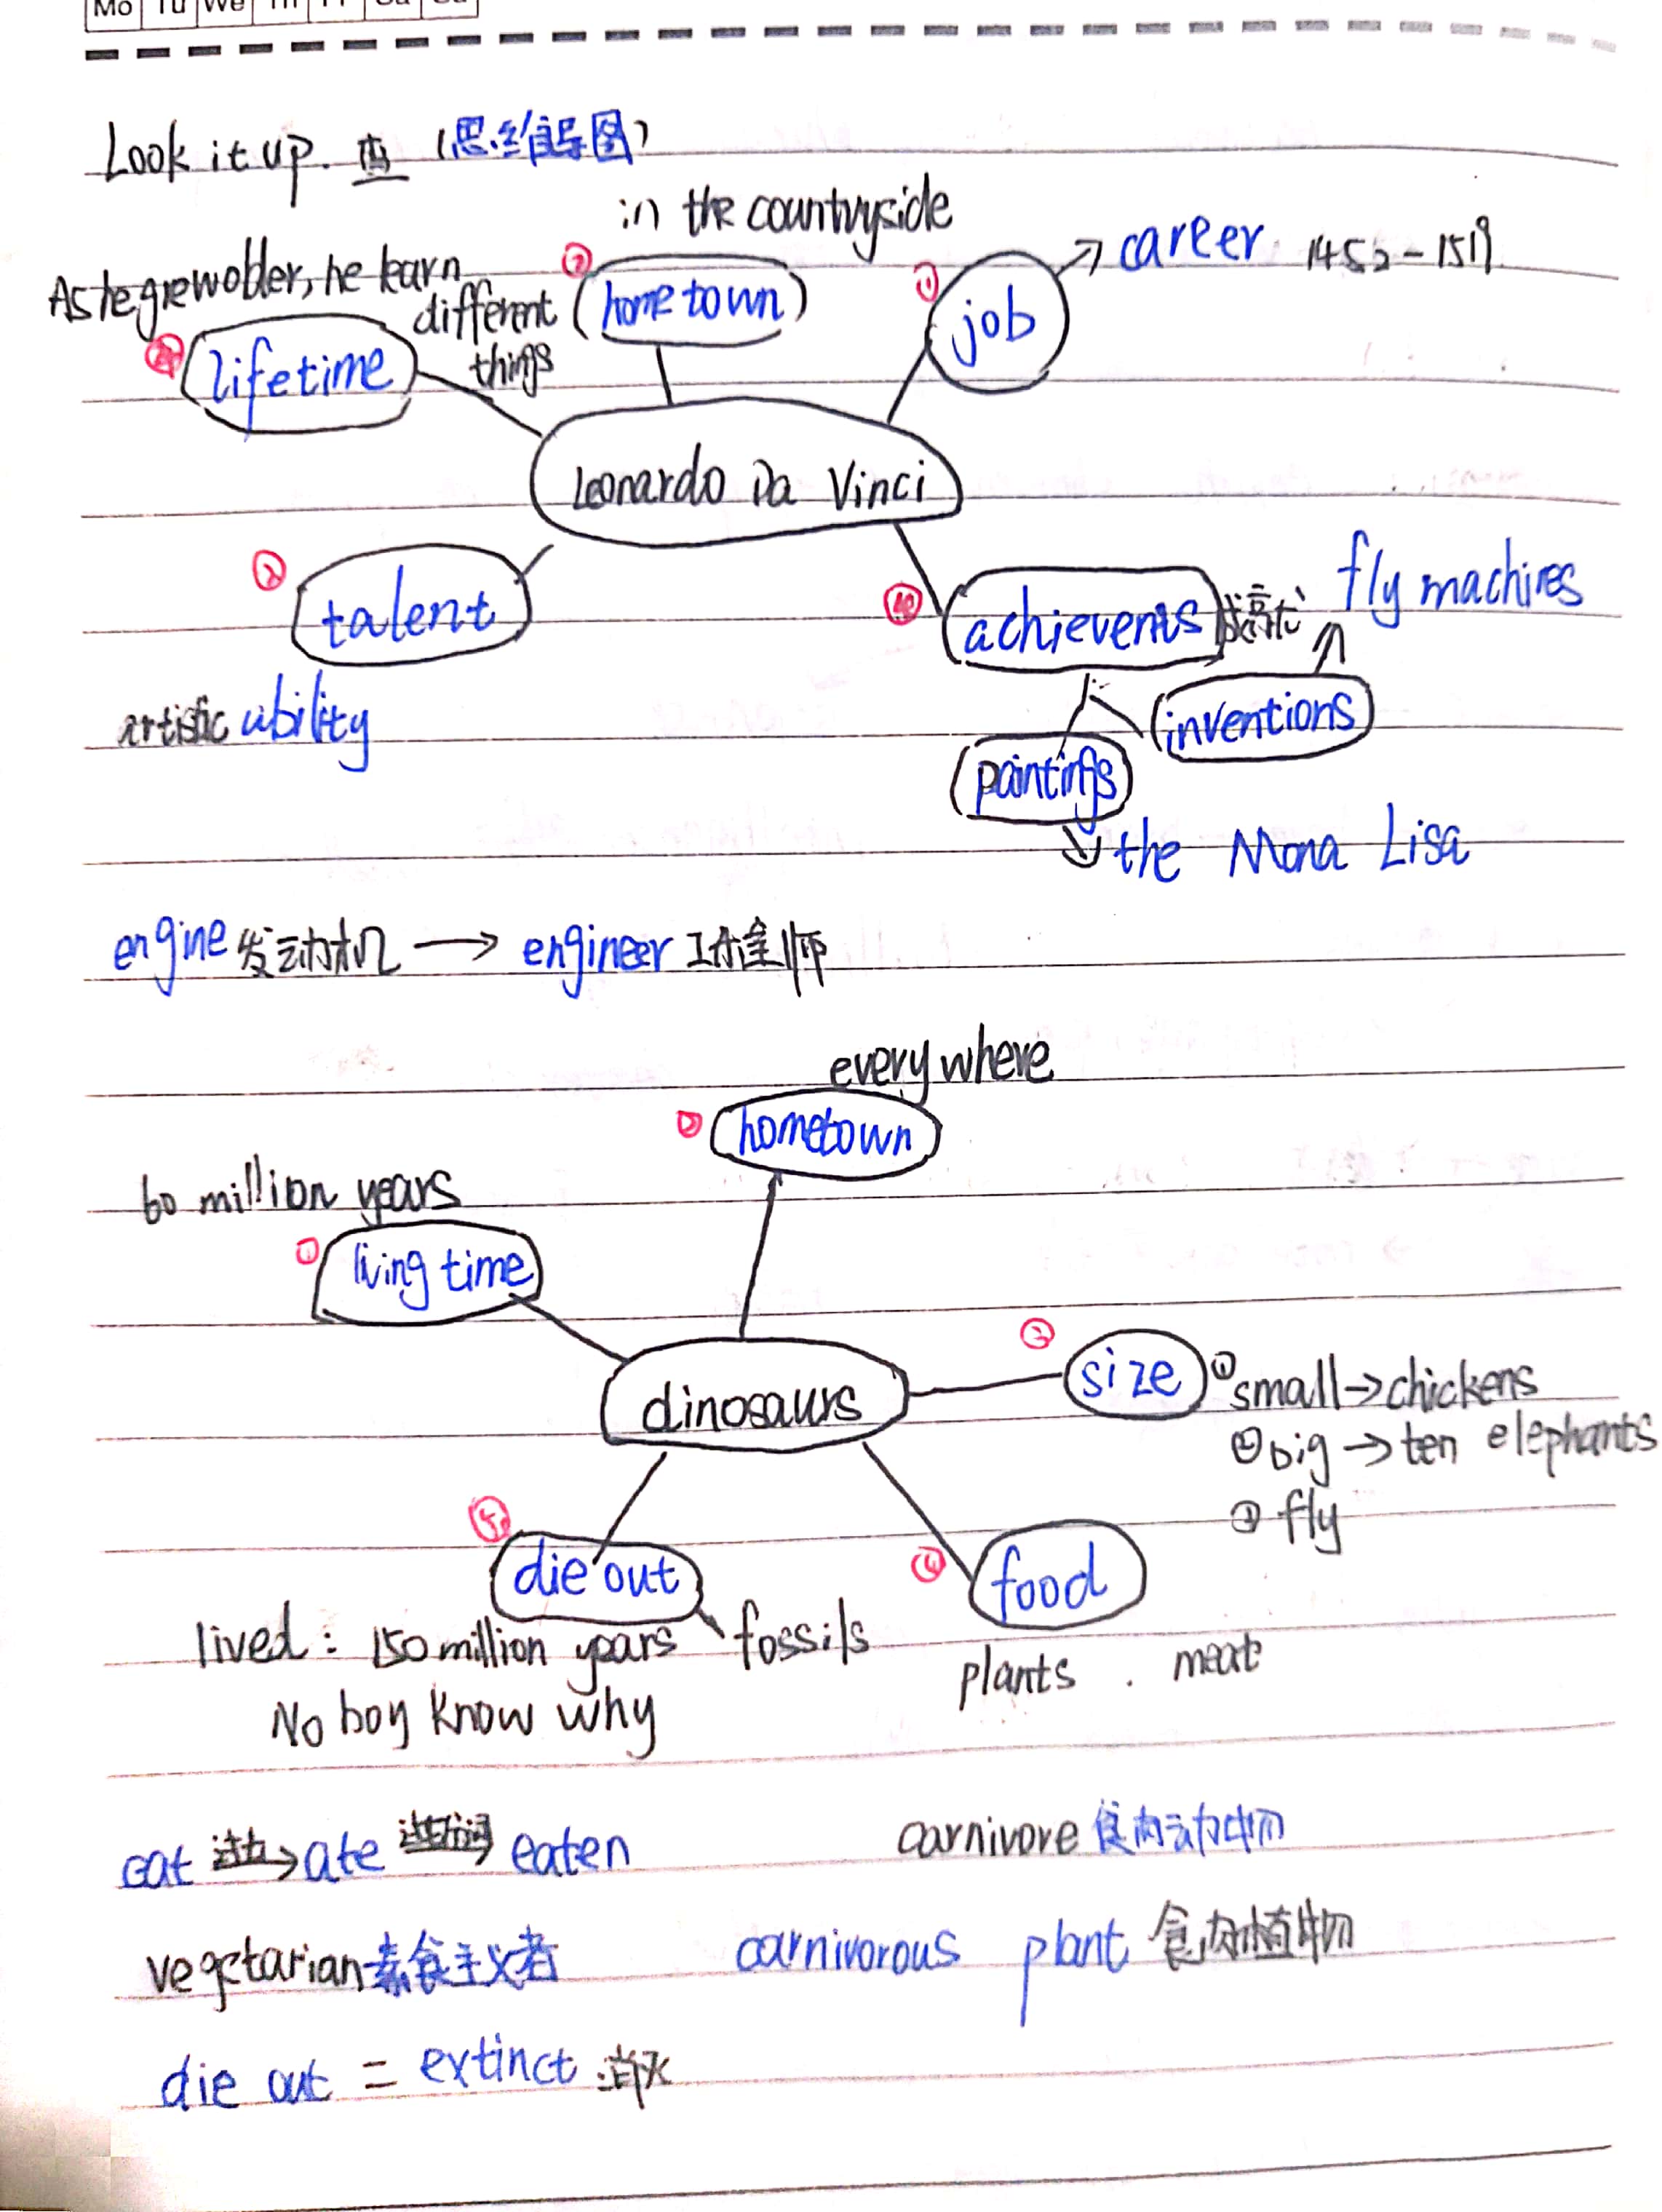 Look it up. 查 (思维导图)
in the countryside
career 1452-1519
As he grew older, he learn
different
things
② (hometown)
① job
lifetime
Leonardo Da Vinci
talent
achievents 成就
fly machines
artistic ability
inventions
paintings
the Mona Lisa
engine 发动机 → engineer 工程师
every where
② hometown
60 million years
① living time
③ size ① small → chickens
dinosaurs
② big → ten elephants
③ fly
⑤ die out
④ food
lived: 150 million years
fossils
plants . meat
No boy know why
eat 过去→ ate eaten
carnivore 食肉动物
vegetarian 素食主义者
carnivorous plant 食肉植物
die out = extinct